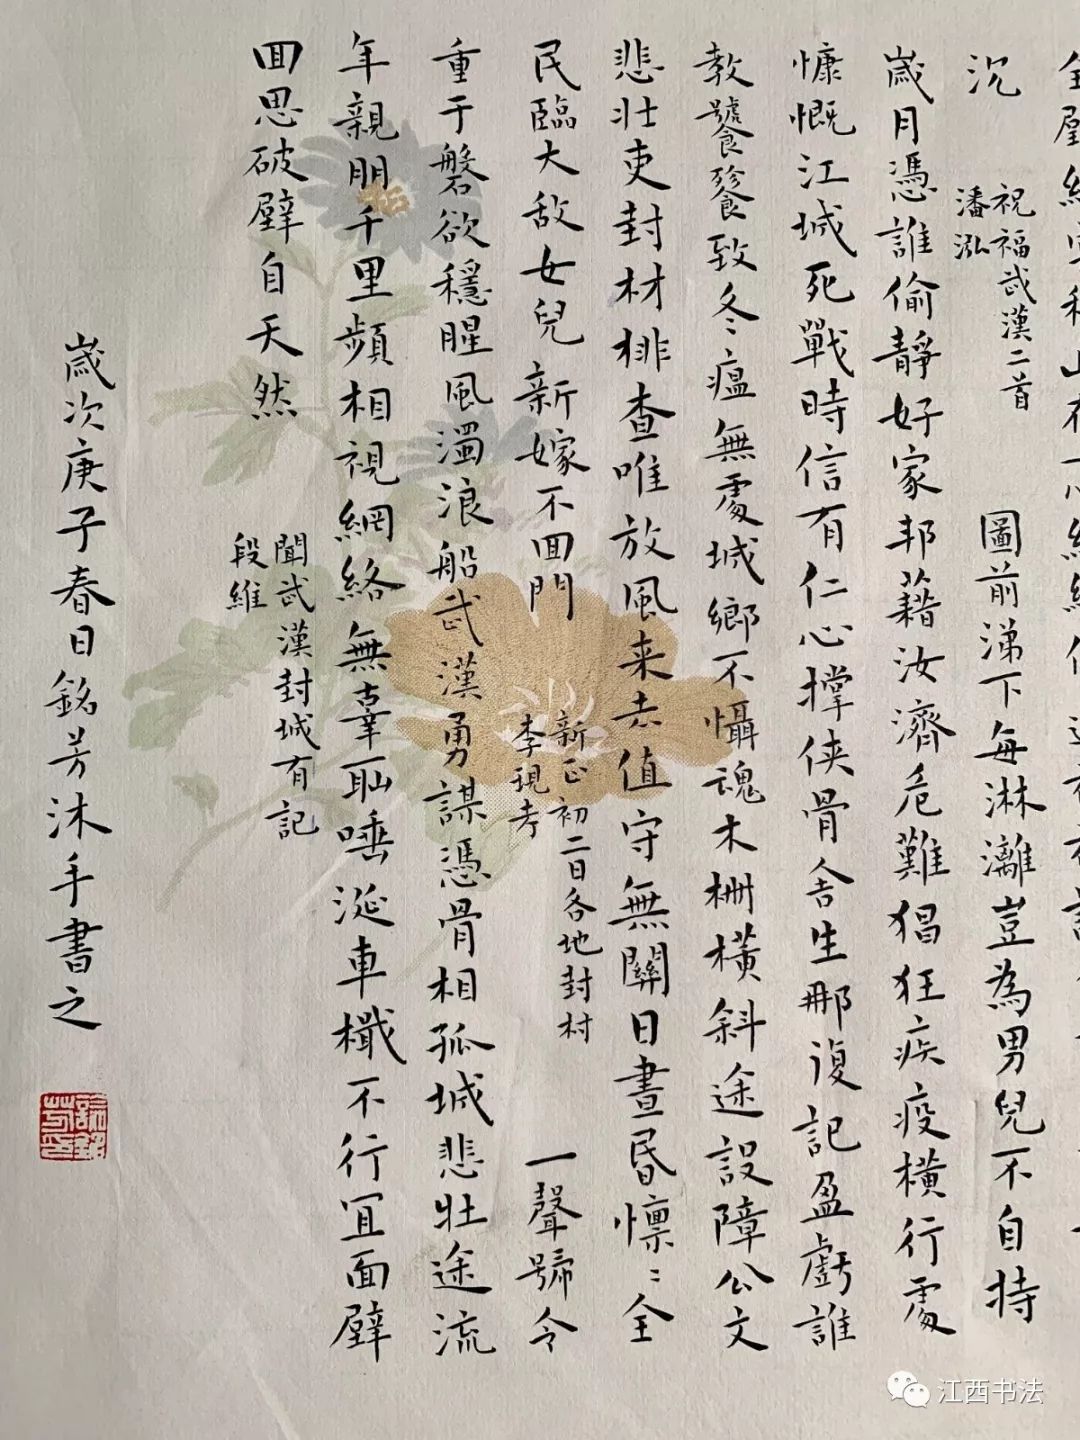 沉
祝福武漢二首
潘泓
圖前涕下每淋漓豈為男兒不自持
歲月憑誰偷靜好家邦藉汝濟危難猖狂疾疫橫行處
慷慨江城死戰時信有仁心撐侠骨舍生那復記盈虧誰
教饕餮致冬瘟無處城鄉不懾魂木柵橫斜途設障公文
悲壯吏封材排查唯放風来去值守無關日晝昏懍〻全
民臨大敌女兒新嫁不回門
新正初二日各地封村
李現考
一聲號令
重于磐欲穩腥風濁浪船武漢勇謀憑骨相孤城悲壯途流
年親朋千里頻相視網絡無辜恥唾涎車檝不行宜面壁
回思破壁自天然
聞武漢封城有記
段維
歲次庚子春日銘芳沐手書之
江西书法